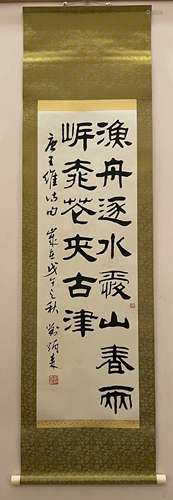 漁舟逐水愛山春兩
岸桃花夾古津
唐王維詩句 歲在戊午之秋 劉炳森